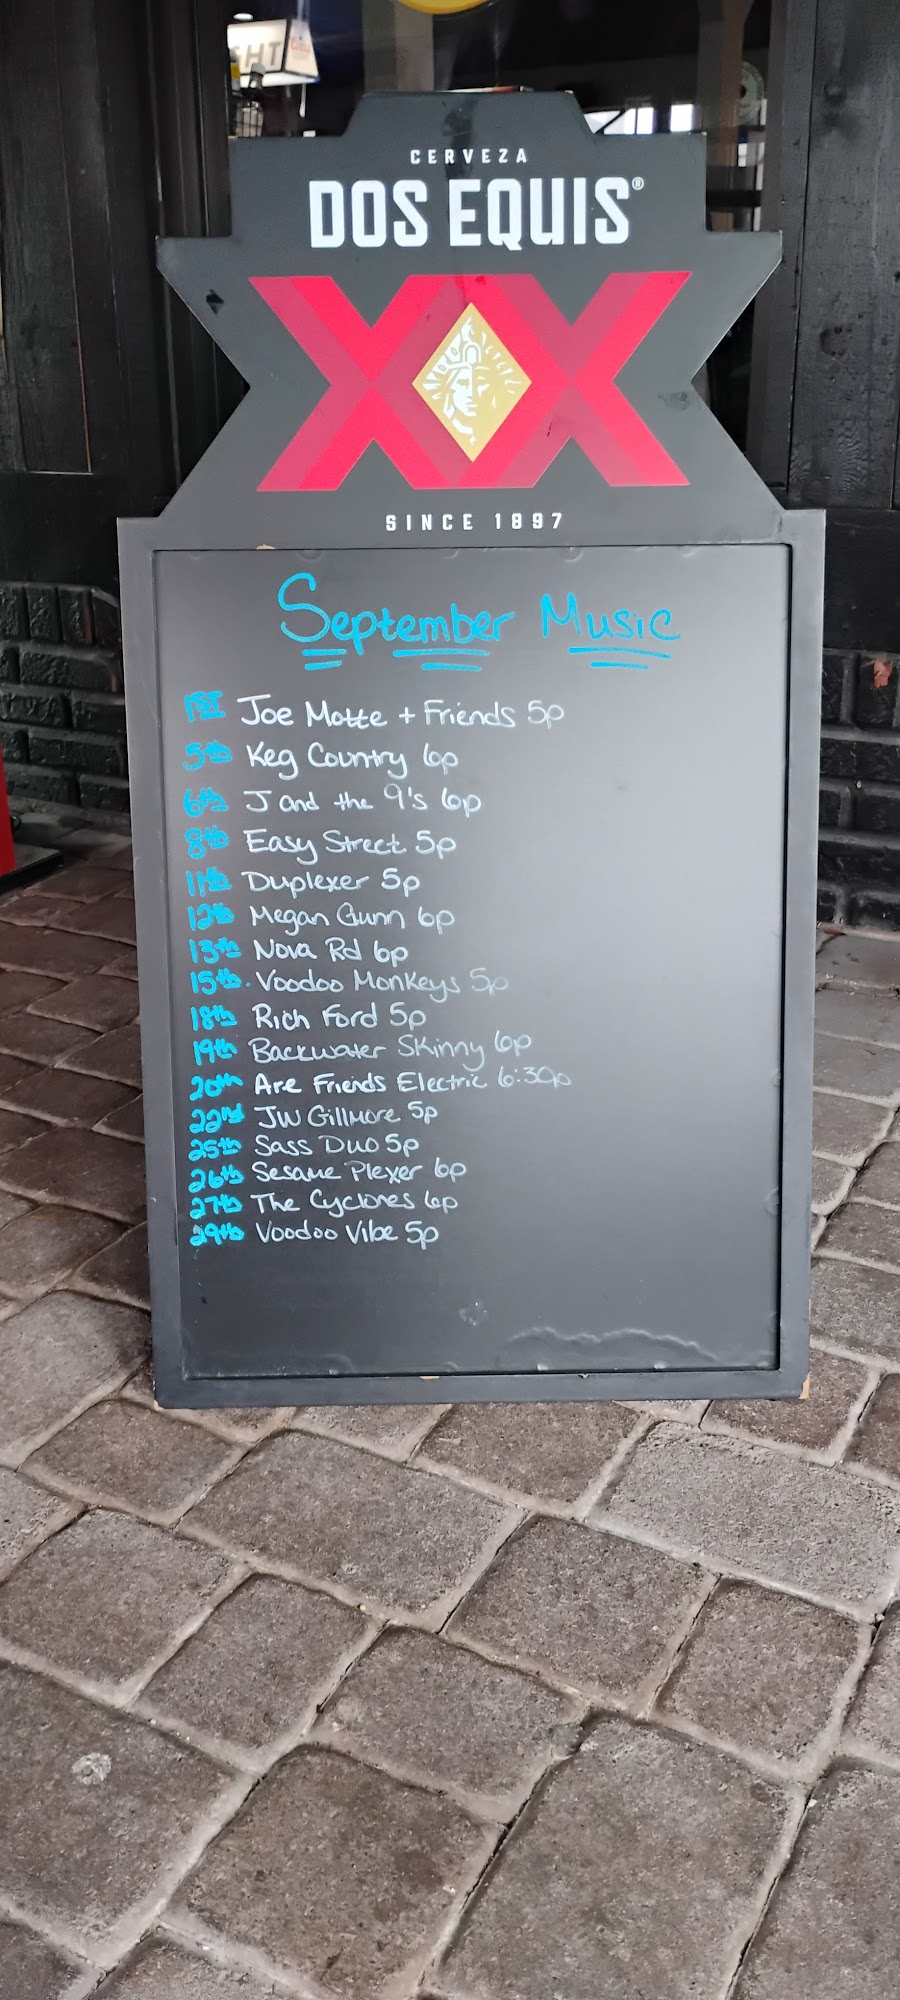 GHT
CERVEZA
DOS EQUIS®
XX
SINCE 1897
September Music
1ST Joe Motte + Friends 5p
5th Keg Country 6p
6th J and the 9's 6p
8th Easy Street 5p
11th Duplexer 5p
12th Megan Gunn 6p
13th Nova Rd 6p
15th. Voodoo Monkeys 5p
18th Rich Ford 5p
19th Backwater Skinny 6p
20th Are Friends Electric 6:30p
22nd JW Gillmore 5p
25th Sass Duo 5p
26th Sesame Plexer 6p
27th The Cyclones 6p
29th Voodoo Vibe 5p